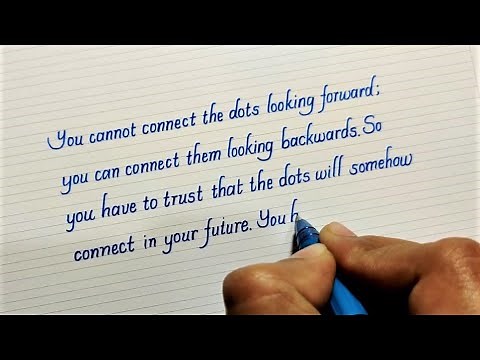 You cannot connect the dots looking forward;
you can connect them looking backwards. So
you have to trust that the dots will somehow
connect in your future. You h